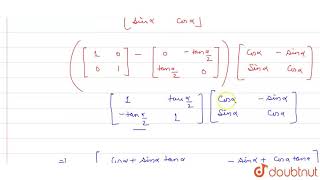 [ sinα cosα ]
( [ 1 0 0 1 ] − [ 0 −tan α/2 tan α/2 0 ] ) [ cosα −sinα sinα cosα ]
[ 1 tan α/2 −tan α/2 1 ] [ cosα −sinα sinα cosα ]
=) [ cosα + sinα tanα −sinα + cosα tanα
doubtnut